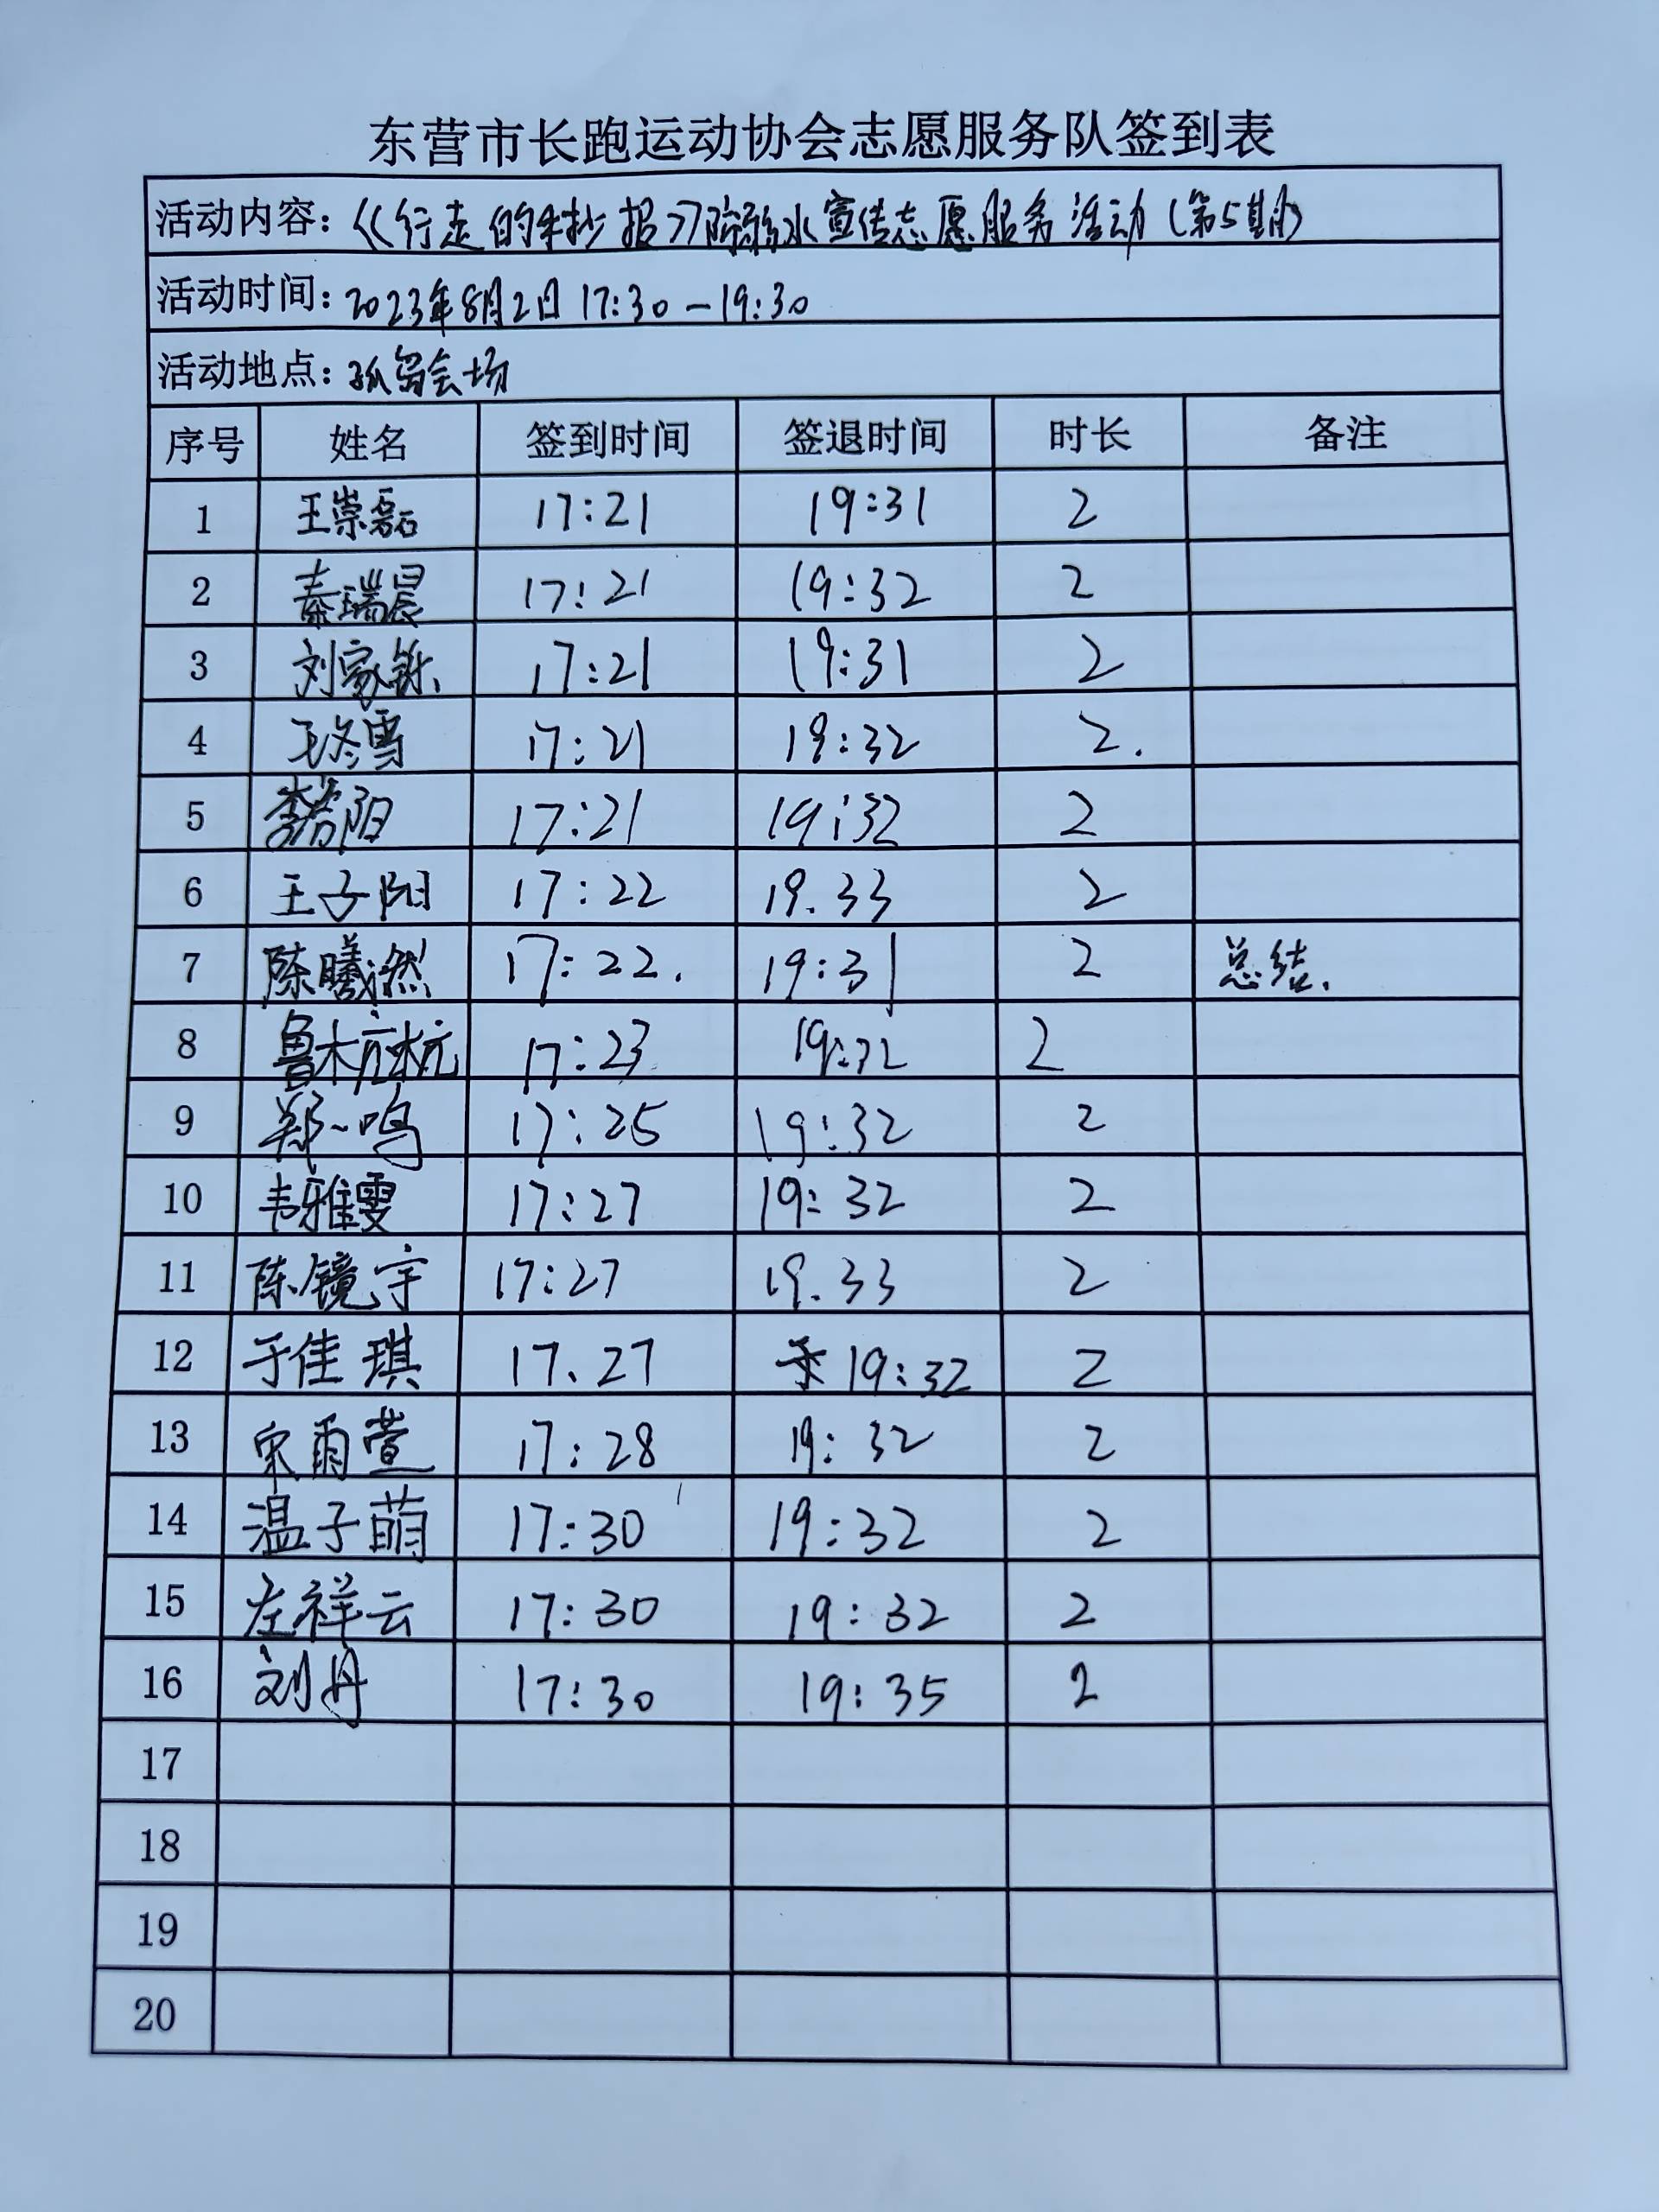 东营市长跑运动协会志愿服务队签到表
活动内容：《行走的手抄报》防溺水宣传志愿服务活动（第5期）
活动时间：2023年8月2日 17:30－19:30
活动地点：孤岛会场
序号 姓名 签到时间 签退时间 时长 备注
1 王崇磊 17:21 19:31 2
2 秦瑞晨 17:21 19:32 2
3 刘家铄 17:21 19:31 2
4 王冬雪 17:21 19:32 2.
5 阳 17:21 19:32 2
6 王子阳 17:22 19.33 2
7 陈曦然 17:22. 19:31 2 总结.
8 鲁木 17:23 19:32 2
9 郑一鸣 17:25 19:32 2
10 韦雅雯 17:27 19:32 2
11 陈镜宇 17:27 19.33 2
12 于佳琪 17.27 19:32 2
13 宋雨萱 17:28 19:32 2
14 温子萌 17:30 19:32 2
15 左祥云 17:30 19:32 2
16 刘丹 17:30 19:35 2
17
18
19
20